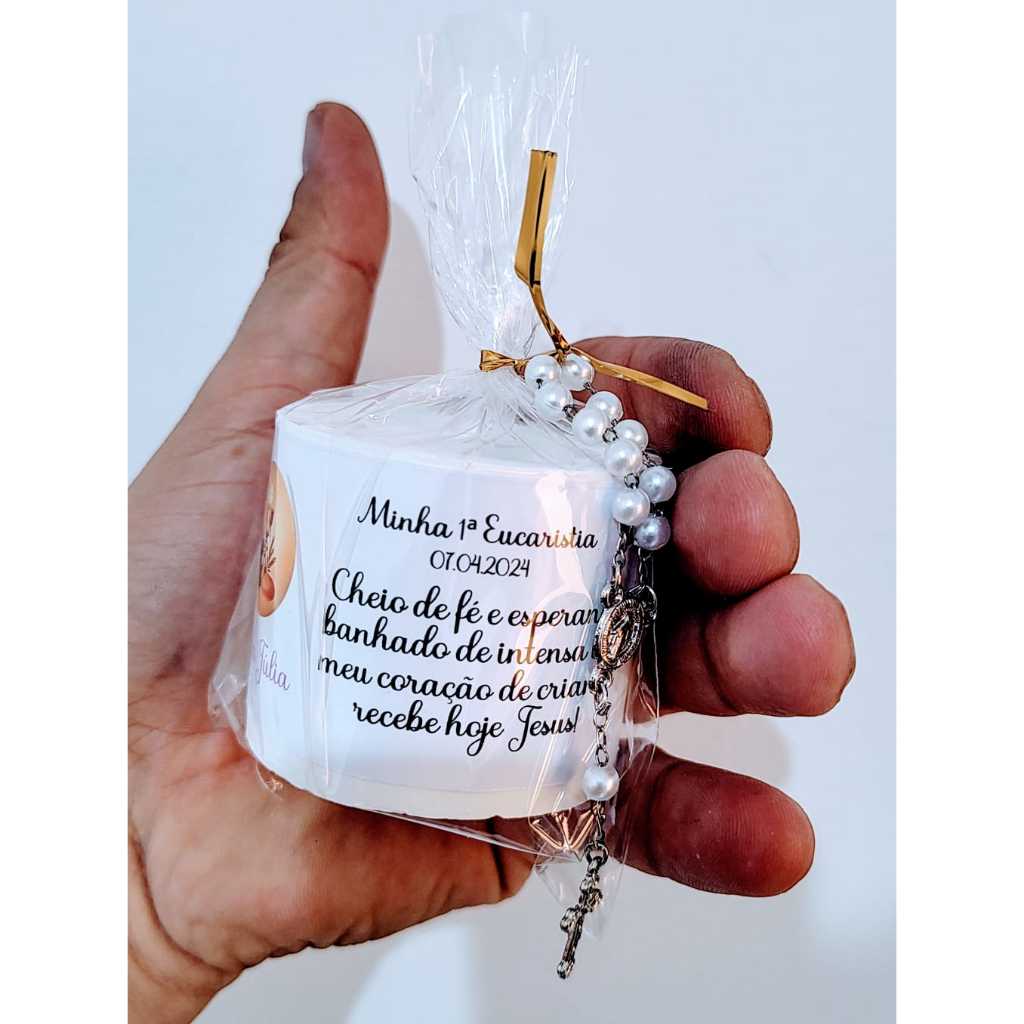 Minha 1ª Eucaristia
07.04.2024
Cheio de fé e
banhado de intensa
meu coração de
recebe hoje Jesus!
Júlia